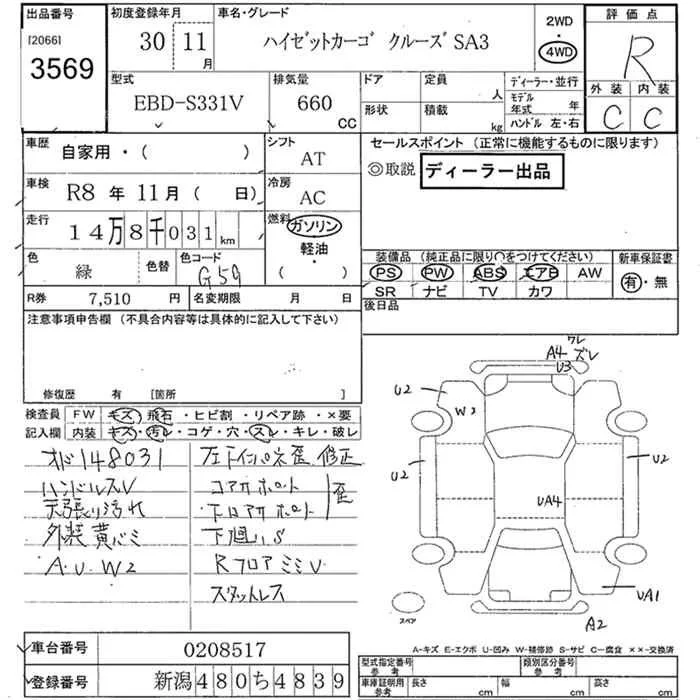 出品番号 初度登録年月 車名・グレード 2WD 評価点
[2066] 30 11月 ハイゼットカーゴ クルーズSA3 ・ R
3569 4WD
型式 排気量 ドア 定員 ディーラー・並行 外装 内装
EBD-S331V 660 CC 人 モデル年式 年 C C
形状 積載 kg ハンドル 左・右
車歴 自家用・( ) シフト AT セールスポイント (正常に機能するものに限ります)
◎取説 ディーラー出品
車検 R8年 11月 ( 日) 冷房 AC
走行 14万8千031km 燃料 ガソリン
軽油・
( )
色 緑 色替 色コード G59 装備品 (純正品に限り○をつけてください) 新車保証書
PS PW ABS エアB AW 有・無
R券 7,510 円 名変期限 月 日 SR ナビ TV カワ
注意事項申告欄 (不具合内容等は具体的に記入して下さい) 後日品
修復歴 有 [箇所 ]
検査員 FW キズ・飛石・ヒビ割・リペア跡・×要
記入欄 内装 キズ・汚レ・コゲ・穴・スレ・キレ・破レ
148031 修正
ハンドルスレ コアサポート 歪
天張り汚れ ロアサポート
外装黄バミ 下廻りS
A.U.W2 Rフロア ミミU
スタットレス
A4 ワレ ズレ
U3
U2 W3
U2 U2
UA4
UA1
スペア A2
A-キズ E-エクボ U-凹み W-補修跡 S-サビ C-腐食 ××-交換済
車台番号 0208517 型式指定番号 参考 類別区分番号 参考
登録番号 新潟480ち4839 車庫証明用 参考 長さ cm 幅 cm 高さ cm